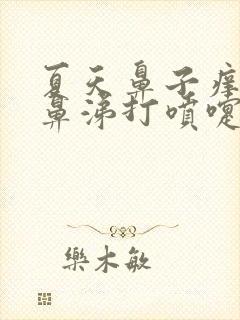 夏天鼻子痒
鼻涕打噴嚏
樂木敏